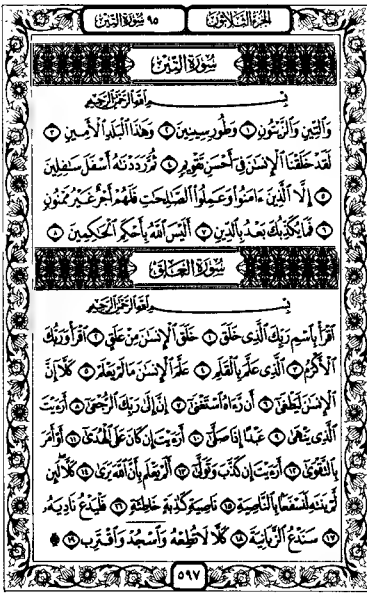 الجزء الثلاثون ٩٥ سورة التين
سورة التين
بسم الله الرحمن الرحيم
وَٱلتِّينِ وَٱلزَّيْتُونِ ١ وَطُورِ سِينِينَ ٢ وَهَٰذَا ٱلْبَلَدِ ٱلْأَمِينِ ٣
لَقَدْ خَلَقْنَا ٱلْإِنسَٰنَ فِىٓ أَحْسَنِ تَقْوِيمٍ ٤ ثُمَّ رَدَدْنَٰهُ أَسْفَلَ سَٰفِلِينَ
٥ إِلَّا ٱلَّذِينَ ءَامَنُوا۟ وَعَمِلُوا۟ ٱلصَّٰلِحَٰتِ فَلَهُمْ أَجْرٌ غَيْرُ مَمْنُونٍ
٦ فَمَا يُكَذِّبُكَ بَعْدُ بِٱلدِّينِ ٧ أَلَيْسَ ٱللَّهُ بِأَحْكَمِ ٱلْحَٰكِمِينَ ٨
سورة العلق
بسم الله الرحمن الرحيم
ٱقْرَأْ بِٱسْمِ رَبِّكَ ٱلَّذِى خَلَقَ ١ خَلَقَ ٱلْإِنسَٰنَ مِنْ عَلَقٍ ٢ ٱقْرَأْ وَرَبُّكَ
ٱلْأَكْرَمُ ٣ ٱلَّذِى عَلَّمَ بِٱلْقَلَمِ ٤ عَلَّمَ ٱلْإِنسَٰنَ مَا لَمْ يَعْلَمْ ٥ كَلَّآ إِنَّ
ٱلْإِنسَٰنَ لَيَطْغَىٰٓ ٦ أَن رَّءَاهُ ٱسْتَغْنَىٰٓ ٧ إِنَّ إِلَىٰ رَبِّكَ ٱلرُّجْعَىٰٓ ٨ أَرَءَيْتَ
ٱلَّذِى يَنْهَىٰ ٩ عَبْدًا إِذَا صَلَّىٰٓ ١٠ أَرَءَيْتَ إِن كَانَ عَلَى ٱلْهُدَىٰٓ ١١ أَوْ أَمَرَ
بِٱلتَّقْوَىٰٓ ١٢ أَرَءَيْتَ إِن كَذَّبَ وَتَوَلَّىٰٓ ١٣ أَلَمْ يَعْلَم بِأَنَّ ٱللَّهَ يَرَىٰ ١٤ كَلَّا لَئِن
لَّمْ يَنتَهِ لَنَسْفَعًۢا بِٱلنَّاصِيَةِ ١٥ نَاصِيَةٍ كَٰذِبَةٍ خَاطِئَةٍ ١٦ فَلْيَدْعُ نَادِيَهُۥ
١٧ سَنَدْعُ ٱلزَّبَانِيَةَ ١٨ كَلَّا لَا تُطِعْهُ وَٱسْجُدْ وَٱقْتَرِب ١٩ ۩
٥٩٧